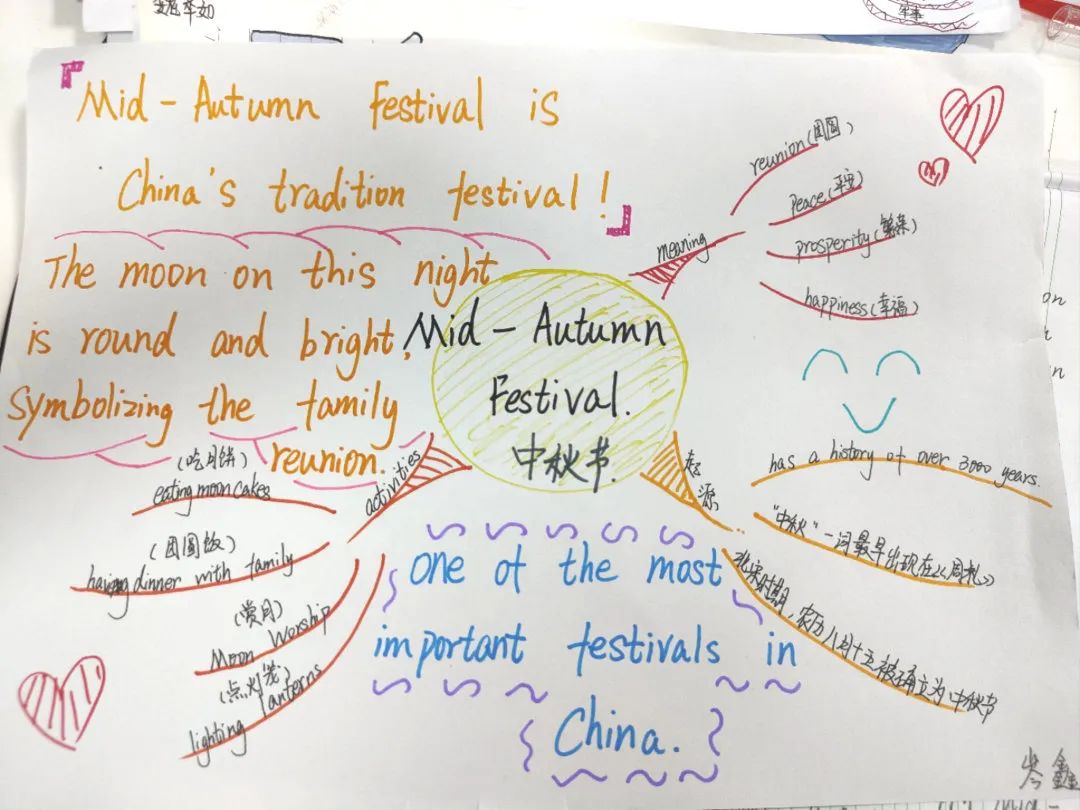 『Mid-Autumn Festival is
China's tradition festival!』
The moon on this night
is round and bright,
Symbolizing the family
reunion.
Mid-Autumn
Festival.
中秋节.
meaning
reunion(团圆)
peace(平安)
prosperity(繁荣)
happiness(幸福)
起源
has a history of over 3000 years.
"中秋"一词最早出现在《周礼》
北宋时期,农历八月十五被确立为中秋节
activities
(吃月饼)
eating moon cakes
(团圆饭)
having dinner with family
(赏月)
Moon Worship
(点灯笼)
lighting lanterns
one of the most
important festivals in
China.
岑鑫